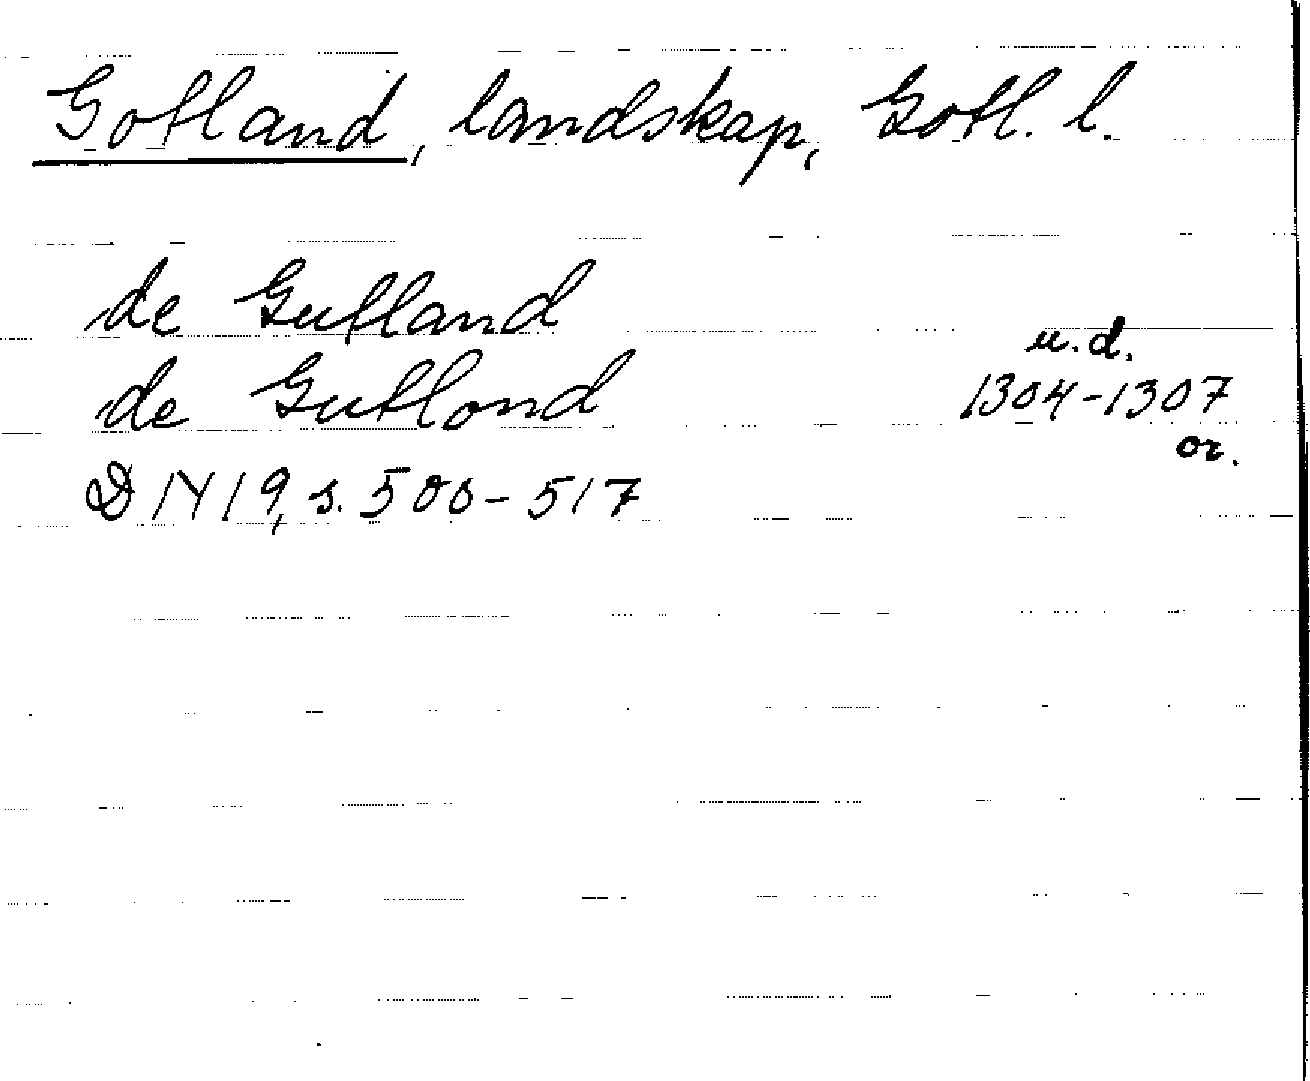 Gotland, landskap, Gotl. l.
de Gutland
de Gutlond
u.d.
1304-1307
or.
D 1419, s. 500-517